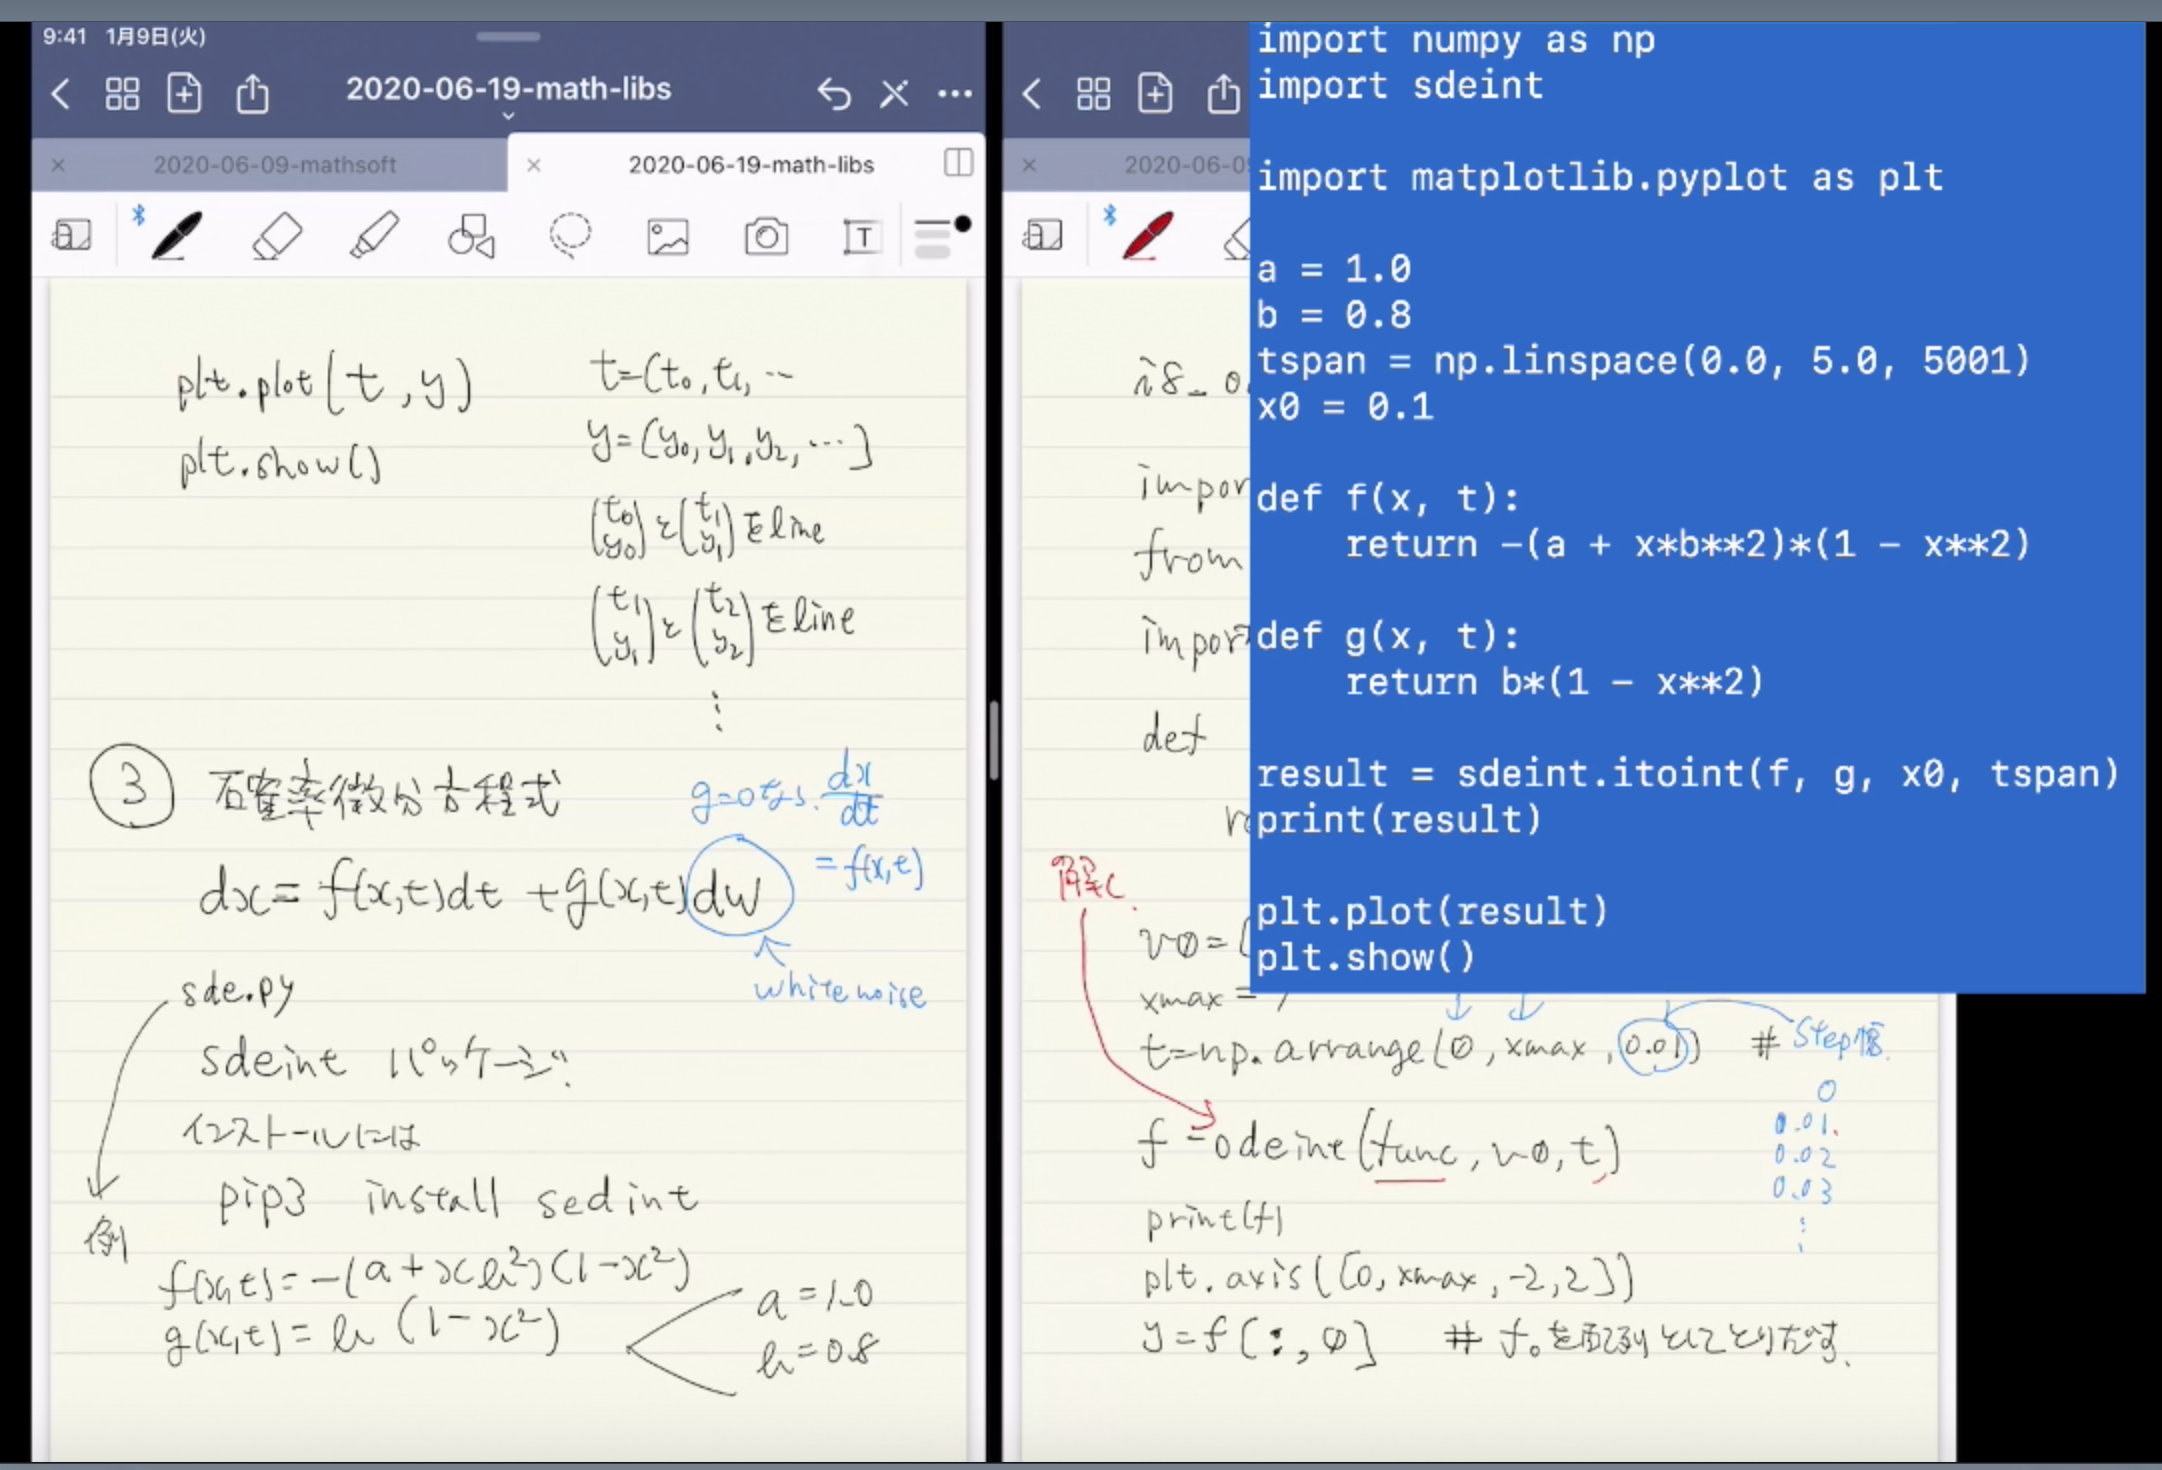 9:41 1月9日(火)
2020-06-19-math-libs
2020-06-09-mathsoft
2020-06-19-math-libs
T
plt.plot(t,y)
plt.show()
t=(t0,t1,…
y=(y0,y1,y2,…)
(t0 y0)と(t1 y1)をline
(t1 y1)と(t2 y2)をline
⋮
③ 確率微分方程式
g=0なら. dx/dt
=f(x,t)
dx=f(x,t)dt+g(x,t)dw
white noise
sde.py
sdeint パッケージ.
インストールには
pip3 install sedint
例
f(x,t)=-(a+xb²)(1-x²)
g(x,t)=b(1-x²)
a=1.0
b=0.8
2020-06-0
i8_0
impor
from
impor
def
r
解く
v0=(
xmax=7
t=np.arrange(0,xmax,0.01) # Step幅
0
0.01.
0.02
0.03
⋮
f=odeint(func,v0,t)
print(f)
plt.axis([0,xmax,-2,2])
y=f[:,0] # f0を配列としてとりだす.
import numpy as np
import sdeint
import matplotlib.pyplot as plt
a = 1.0
b = 0.8
tspan = np.linspace(0.0, 5.0, 5001)
x0 = 0.1
def f(x, t):
    return -(a + x*b**2)*(1 - x**2)
def g(x, t):
    return b*(1 - x**2)
result = sdeint.itoint(f, g, x0, tspan)
print(result)
plt.plot(result)
plt.show()